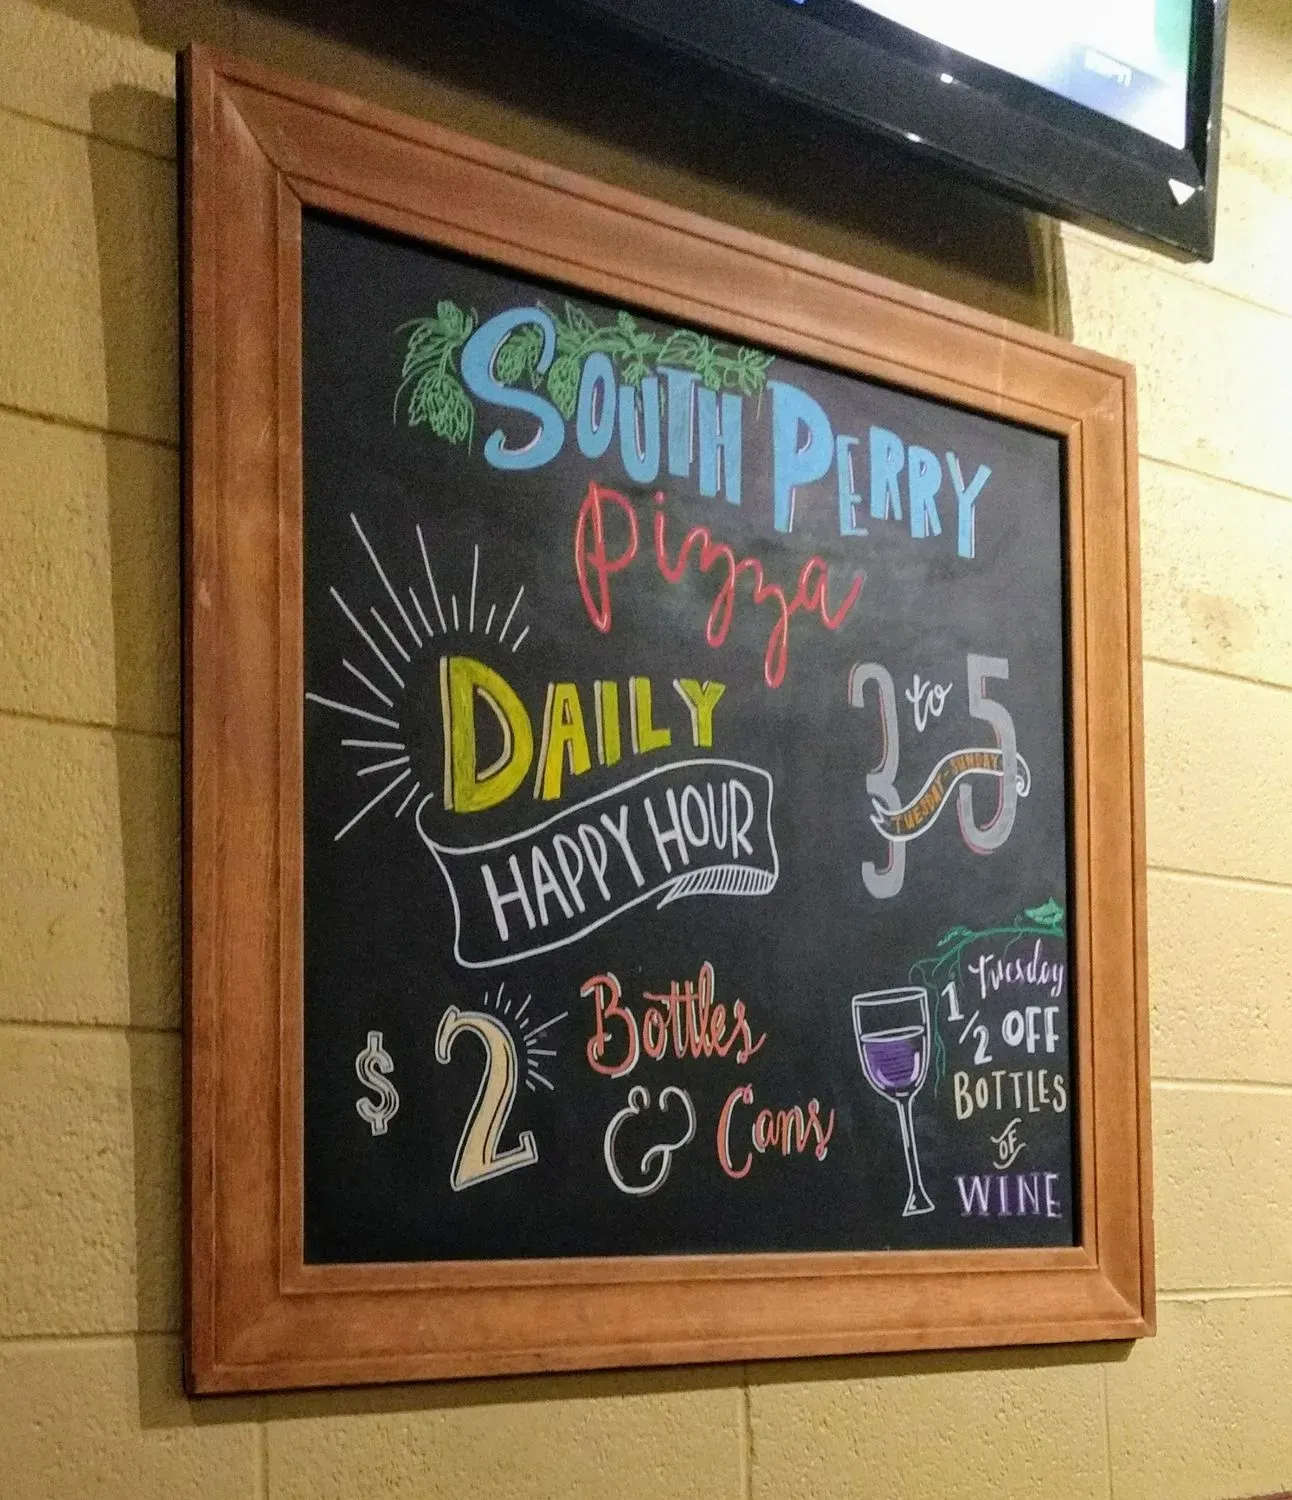 South Perry
Pizza
Daily
Happy Hour
3 to 5
Tuesday - Sunday
$2 Bottles
& Cans
Tuesday
1/2 Off
Bottles
of
Wine